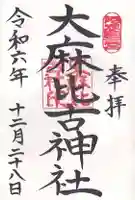 奉拝
大麻比古神社
令和六年 十二月二十八日